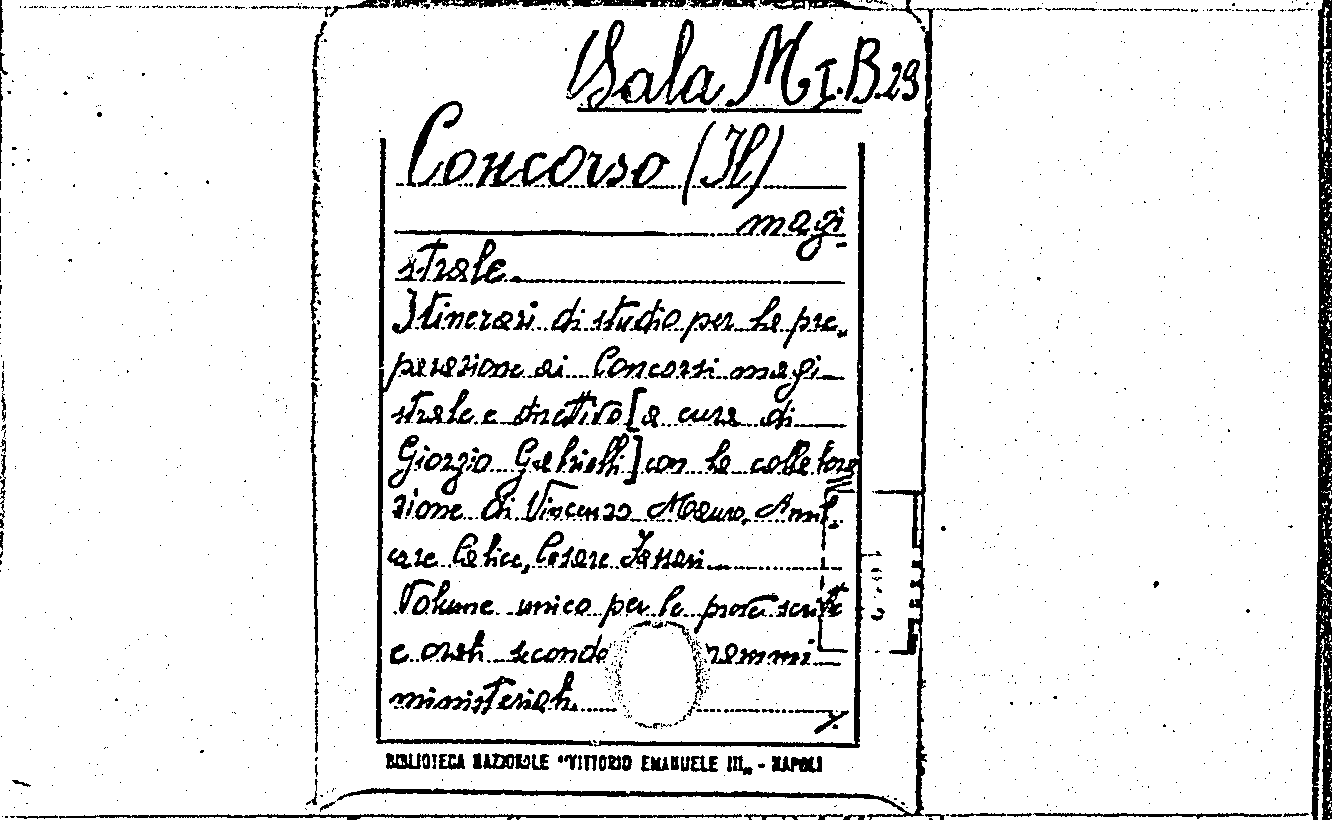 Sala M I.B.29
Concorso (Il)
magi
strale.
Itinerari di studio per la pre.
parazione ai Concorsi magi-
strale e direttivo [a cura di
Giorgio Gabrielli] con la collabora
zione di Vincenzo Mauro, Amil.
care Celico, Cesare
Volume unico per le prove scritte
e orali secondo rammi
ministeriali.
BIBLIOTECA NAZIONALE "VITTORIO EMANUELE III„ - NAPOLI